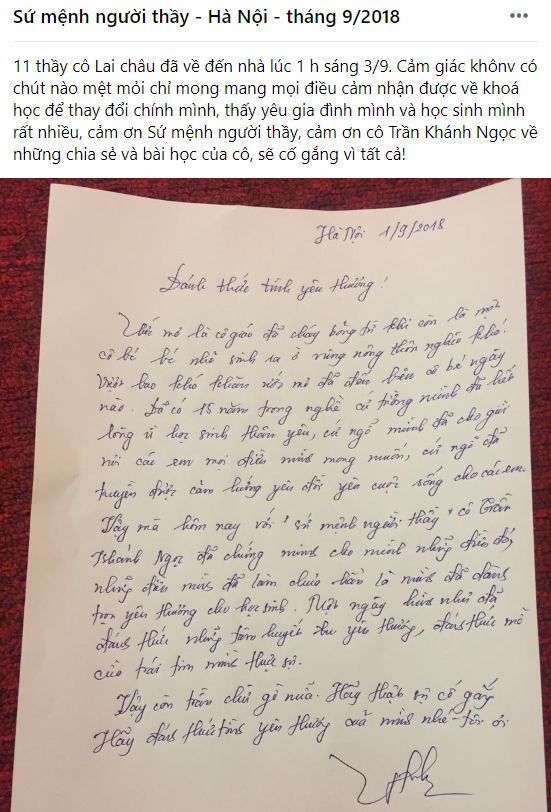 Sứ mệnh người thầy - Hà Nội - tháng 9/2018
11 thầy cô Lai châu đã về đến nhà lúc 1 h sáng 3/9. Cảm giác khônv có
chút nào mệt mỏi chỉ mong mang mọi điều cảm nhận được về khoá
học để thay đổi chính mình, thấy yêu gia đình mình và học sinh mình
rất nhiều, cảm ơn Sứ mệnh người thầy, cảm ơn cô Trần Khánh Ngọc về
những chia sẻ và bài học của cô, sẽ cố gắng vì tất cả!
Hà Nội 1/9/2018
Đánh thức tình yêu thương!
Ước mơ là cô giáo đã cháy bỏng từ khi còn là một
cô bé bé nhỏ sinh ra ở vùng nông thôn nghèo khó!
Vượt bao khó khăn ước mơ đã đến bên cô bé ngày
nào. Đã có 15 năm trong nghề cứ tưởng mình đã hết
lòng vì học sinh thân yêu, cứ ngỡ mình đã cho giới
nói các em mọi điều mình mong muốn, cứ ngỡ đã
truyền được cảm hứng yêu đời yêu cuộc sống cho các em.
Vậy mà hôm nay với "sứ mệnh người thầy", cô Trần
Khánh Ngọc đã chứng minh cho mình những điều đó,
những điều mình đã làm chưa hẳn là mình đã dành
trọn yêu thương cho học sinh. Một ngày hình như đã
đánh thức những tâm huyết yêu thương, đánh thức
của trái tim mình thực sự.
Vậy còn trần chừ gì nữa. Hãy thật sự cố gắng
Hãy đánh thức tình yêu thương của mình nhé - tôi ơi